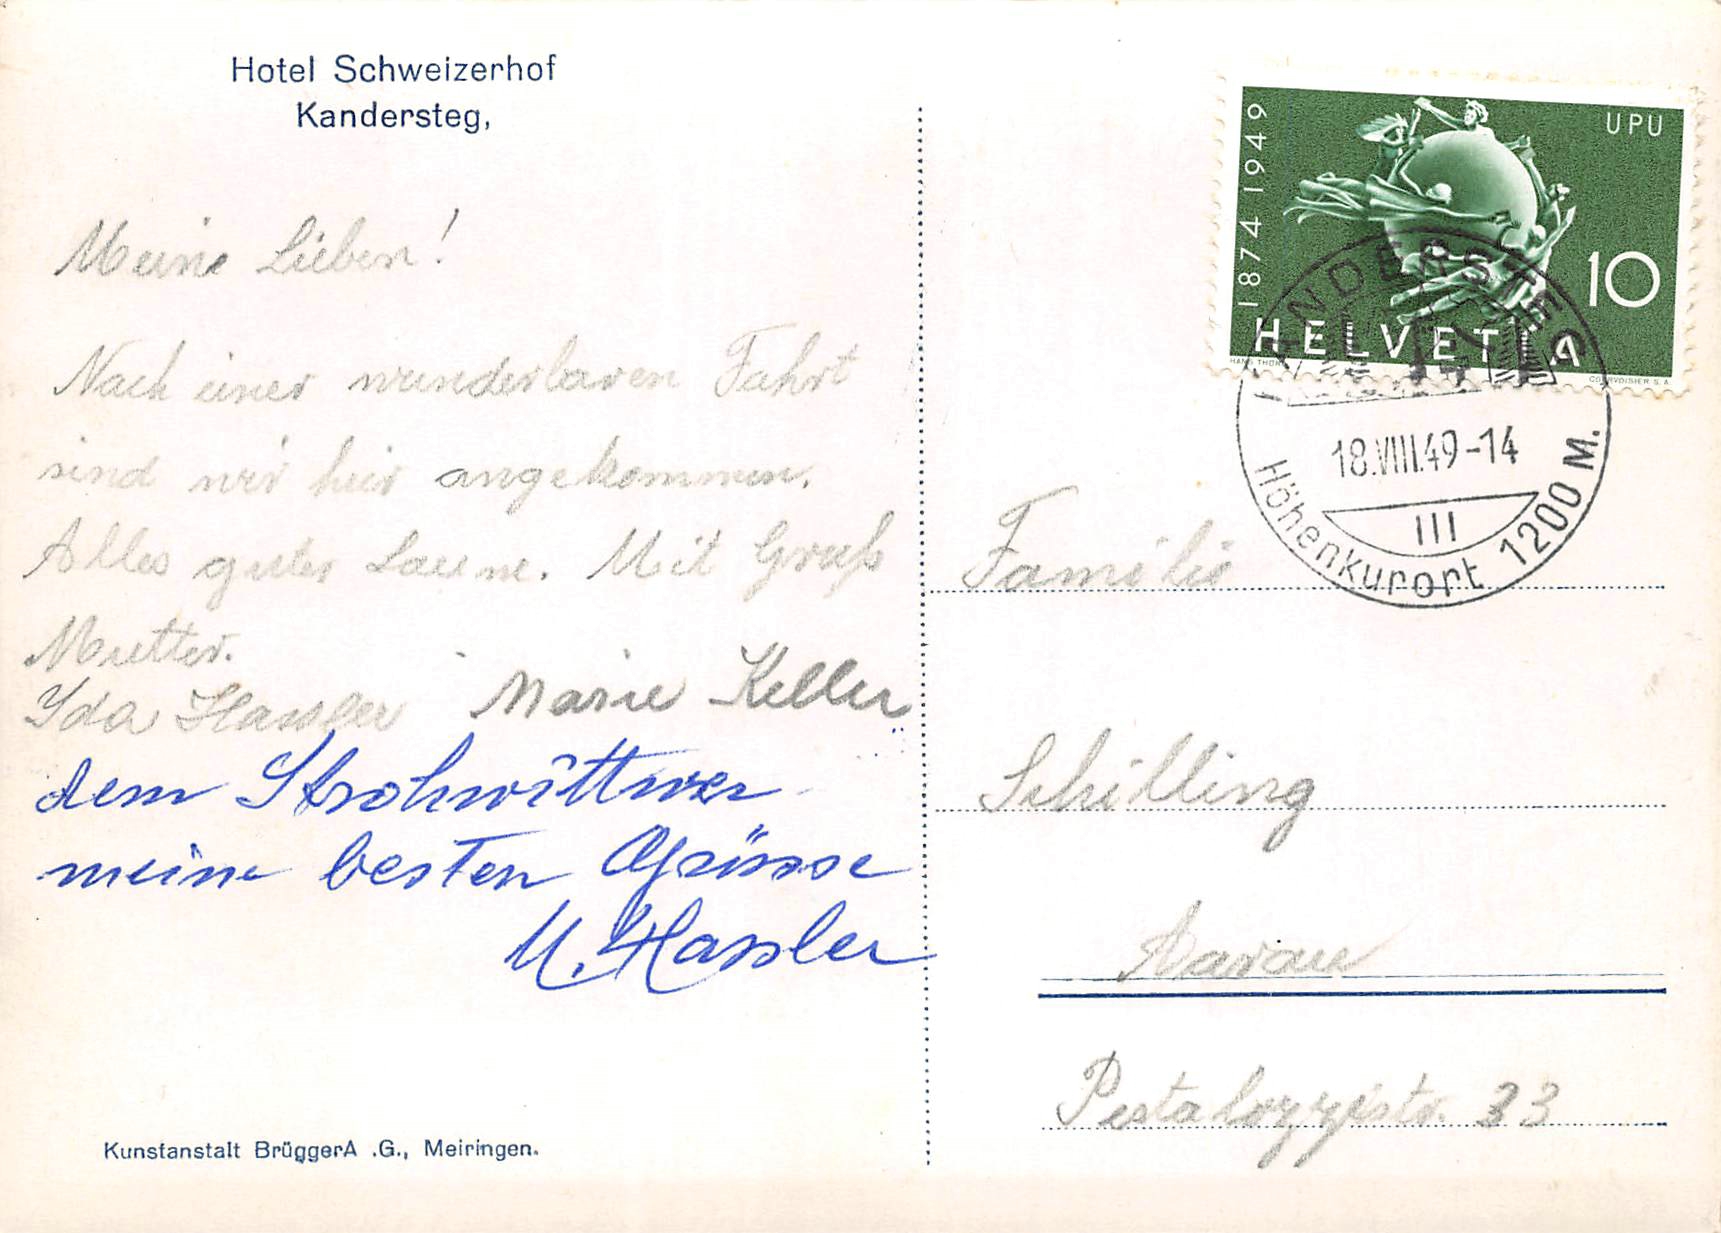 Hotel Schweizerhof
Kandersteg,
Meine Lieben!
Nach einer wunderbaren Fahrt
sind wir hier angekommen.
Alles guter Laune. Mit Gruß
Mutter.
Yda Hassler Marie Keller
dem Strohwittwer
meine besten Grüsse
M. Hassler
Kunstanstalt BrüggerA .G., Meiringen.
1874 1949
UPU
10
HELVETIA
COURVOISIER S.A.
KANDERSTEG
18.VIII.49-14
III
Höhenkurort 1200 M.
Familie
Schilling
Aarau
Pestalozzistr. 33